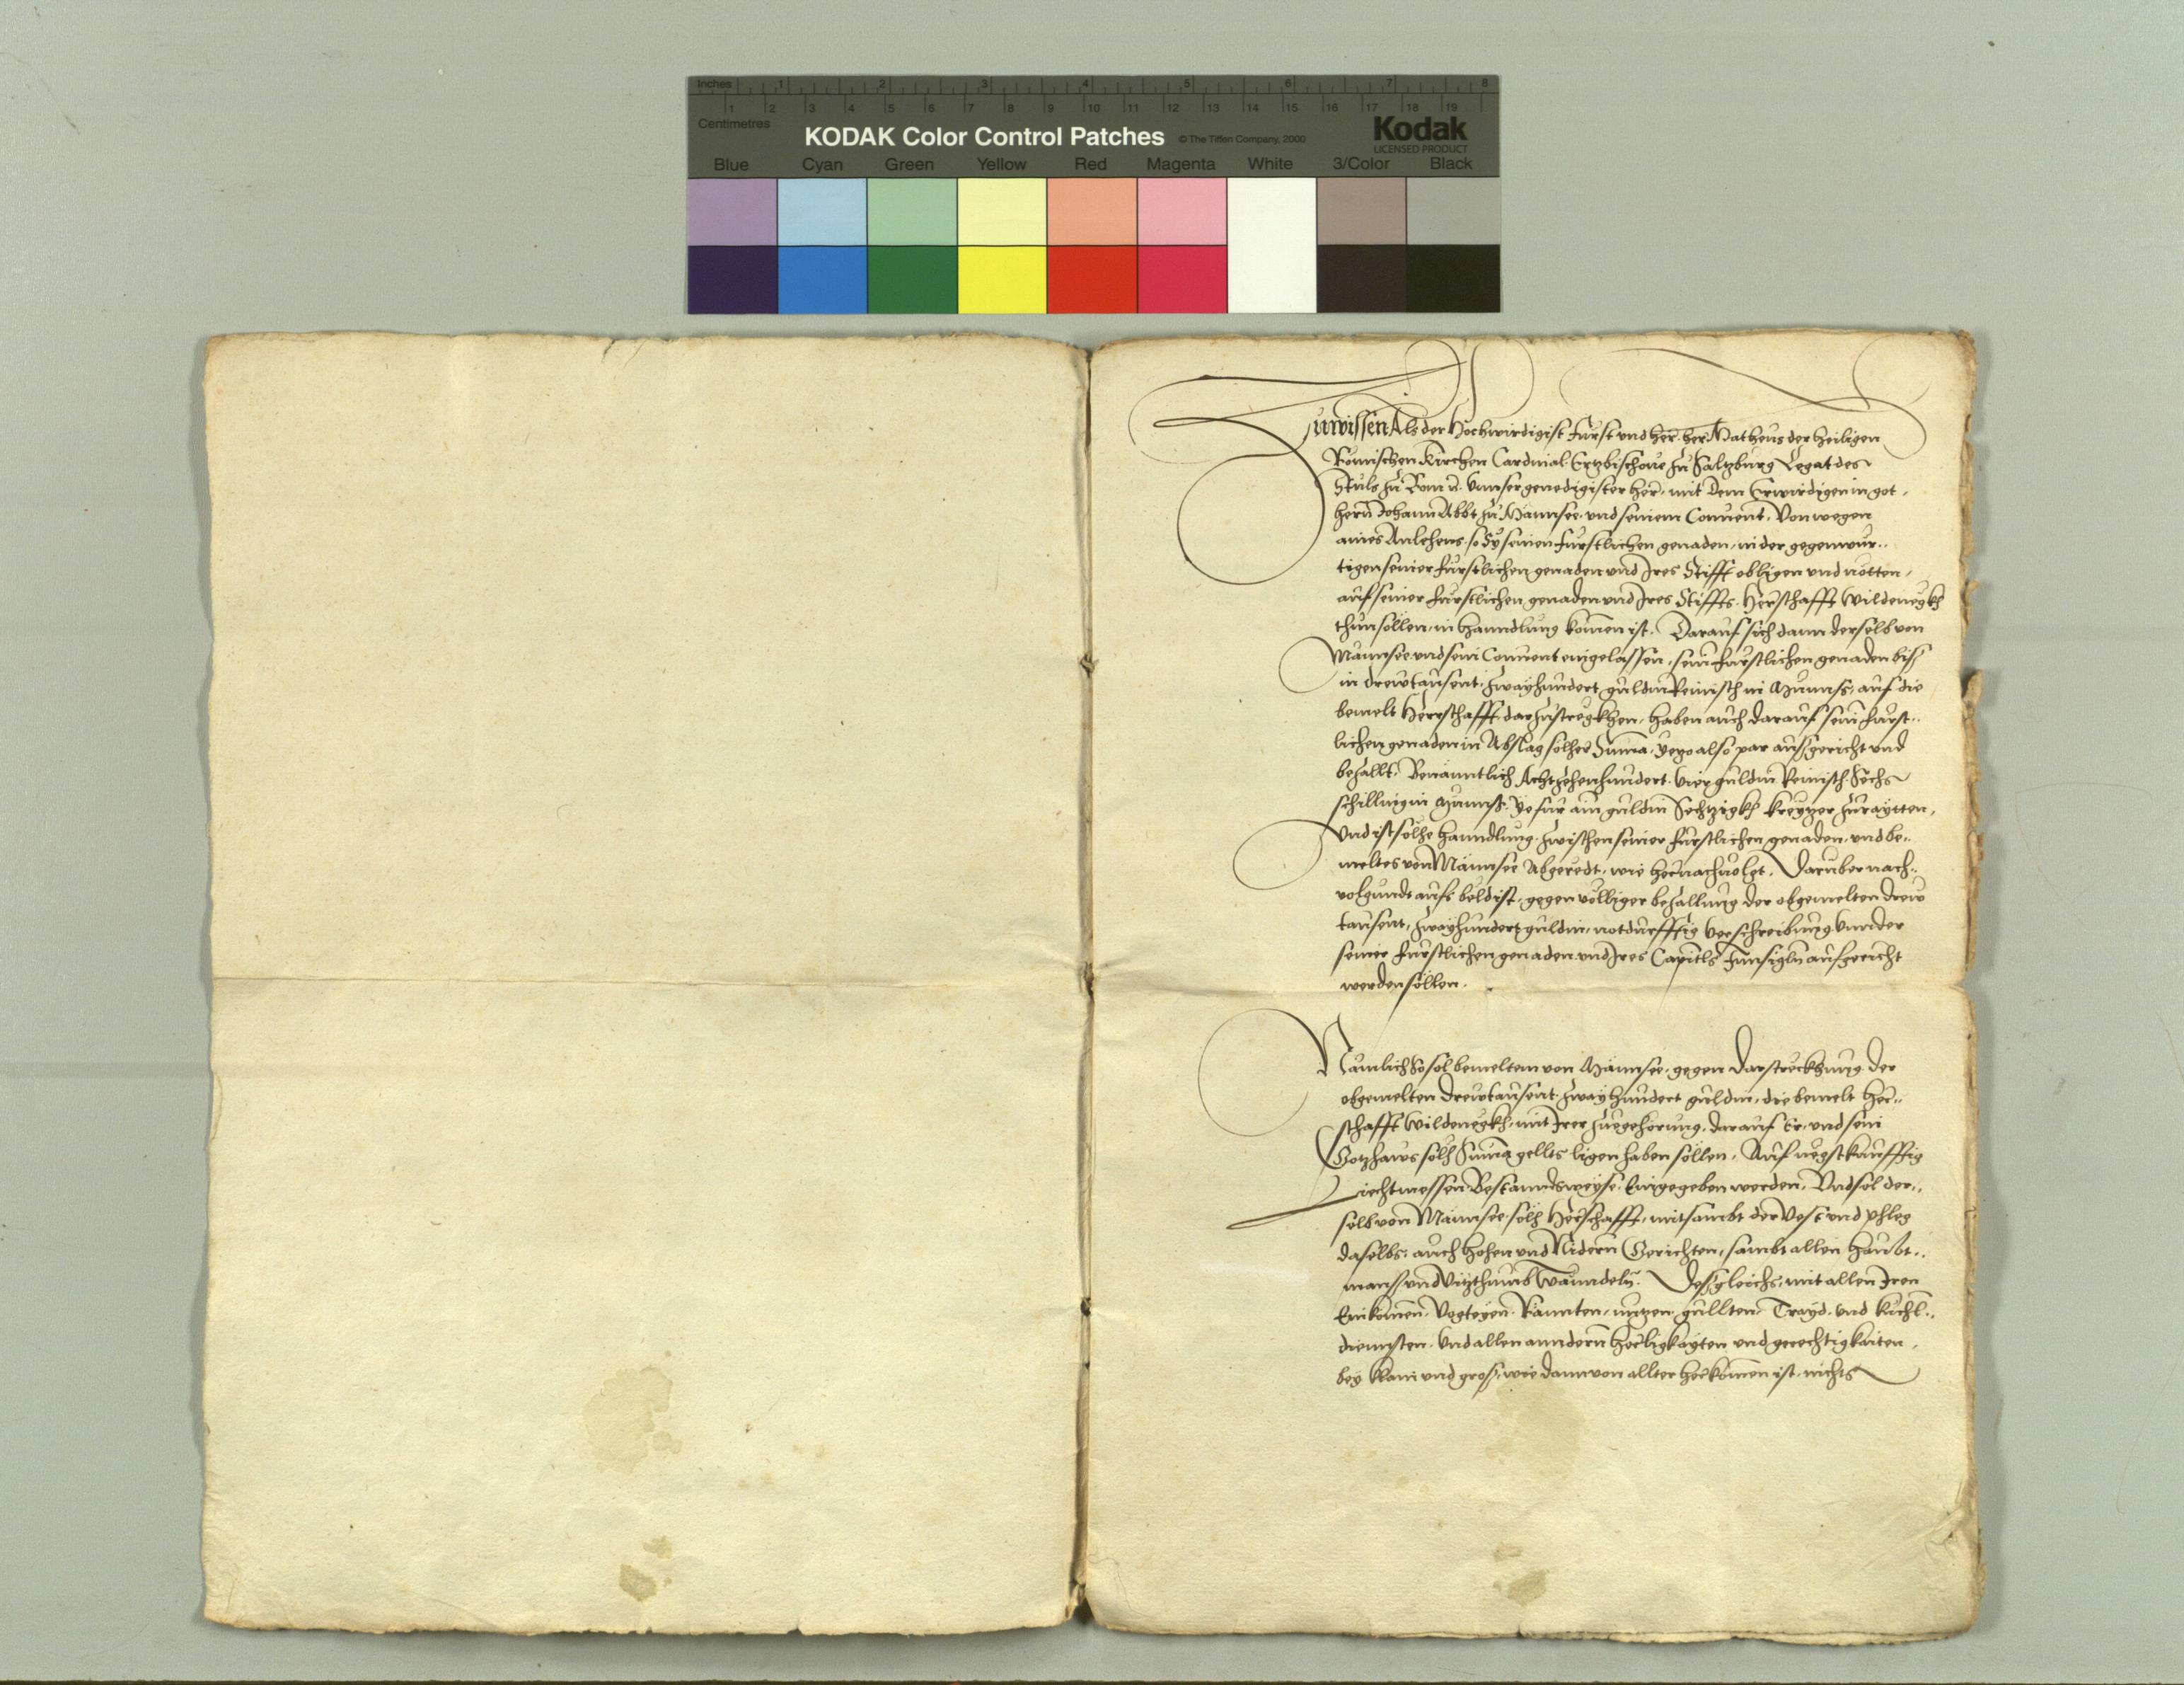 Inches 1 2 3 4 5 6 7 8
1 2 3 4 5 6 7 8 9 10 11 12 13 14 15 16 17 18 19
Centimetres
KODAK Color Control Patches © The Tiffen Company, 2000 Kodak
LICENSED PRODUCT
Blue Cyan Green Yellow Red Magenta White 3/Color Black
Zuwissen Als der Hochwirdigist Furst und Her. her Matheus der heiligen
Römischen Kirchen Cardinal Ertzbischoue zu Saltzburg Legat des
Stuls zu Rom unser genedigister her, mit dem Erwirdigen in got
hern Johann Abbt zu Mannsee und seinem Convent, Von wegen
aines Anlehens so Sy seinen furstlichen genaden, in der gegenwur..
tigen seiner furstlichen genaden und Ires Stifft obligen und notten,
auf seiner furstlichen genaden und Ires Stiffts Herschafft Wildenegkh
thun sollen, in hanndlung komen ist. Darauf sich dann derselb von
Mannsee und sein Convent eingelassen, sein furstlichen genaden biss
in drewtausent zwayhundert guldin Reinisch in Munnss, auf die
bemelt Herrschafft darzustregkhen, haben auch darauf sein furst..
lichen genaden in Abslag solher Suma, yezo also par aussgericht und
bezallt, Benanntlich Achtzehenhundert vier guldin Reinisch Sechs
schilling in Munnss, ye fur ain guldin Sechtzigkh kreytzer zuraytten,
Und ist solhe hanndlung zwischen seiner furstlichen genaden, und be..
meltes von Mannsee Abgeredt, wie hernachvolgt. Daruber nach..
volgundt aufs beldist, gegen volliger bezallung der obgemelten drew
tausent, zwayhundert guldin, notdurfftig verschreibung unnder
seiner furstlichen genaden und Ires Capitls Innsigln aufgericht
werden sollen.
Namlich So sol bemeltem von Mannsee, gegen darstreckhung der
obgemelten drewtausent zwayhundert guldin, die bemelt Her..
schafft Wildenegkh, mit Irer zuegehorung, darauf Er, und sein
Gotzhaws solh Suma gellts ligen haben sollen, Auf negstkunfftig
Liechtmessen Bestanndsweyse Eingegeben werden, Und sol der..
selb von Mannsee solh Herschafft, mitsambt der Vest und phleg
daselbs, auch hohen und Nidern Gerichten, sambt allen haubt..
manss und Vitzthumb Wänndeln. Dessgleichs, mit allen Iren
Einkomen, Vogteyen, Rannten, nutzen, gullten, Trayd, und kuchl..
diennsten, Und allen anndern herligkayten und gerechtigkaiten,
bey klain und gross, wie dann von allter herkomen ist, nichts